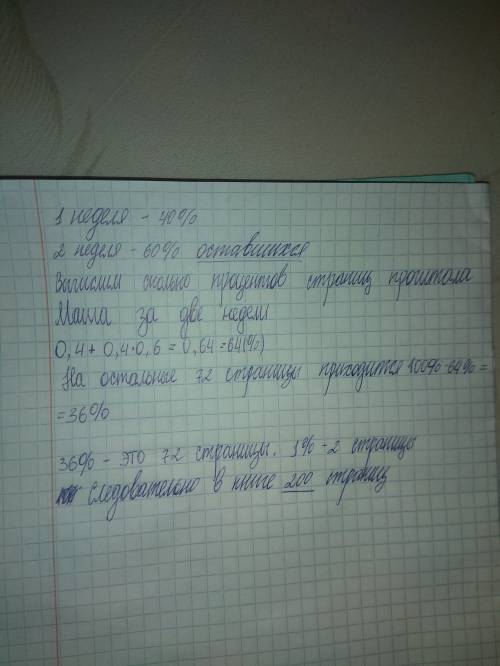 1 неделя - 40%
2 неделя - 60% оставшихся
Вычислим сколько процентов страниц прочитала
Маша за две недели
0,4 + 0,4·0,6 = 0,64 = 64(%)
На остальные 72 страницы приходится 100%-64% =
= 36%
36% - это 72 страницы. 1% - 2 страницы
следовательно в книге 200 страниц